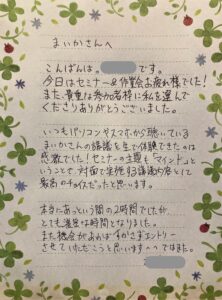 まいかさんへ
こんばんは。です。
今日はセミナー&作業会お疲れ様でした!
また、貴重な参加者枠に私を選んで
くださりありがとうございました。
いつもパソコンやスマホから聴いている
まいかさんの講義を生で体験できたのは
感激でした!セミナーの主題も"マインド"と
いうことで、対面で実施する講義内容として
最高のものだったと思います。
本当にあっという間の2時間でしたが、
とても濃星な時間となりました。
また機会があればすかさずエントリー
させていただこうと思います^^ではまた。